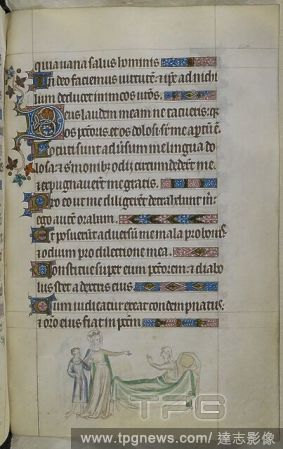 quia uana salus hominis
In deo faciemus uirtutē: et ipse ad nichi
lum deducet inimicos nr̄os.
Deus laudem meam ne tacueris: qr̄
os pctōris et os dolosi sr̄ me aptū ē.
Locuti sunt aduersum me lingua do
losa: et sermonib; odii circumdederūt me
et expugnauerūt me gratis.
Pro eo ut me diligerēt detrahebant m̄:
ego autē orabam.
Et posuerūt aduersū me mala pro bonis:
et odium pro dilectione mea.
Constitue super eum pctōrem: et diabo
lus stet a dextris eius.
Cum iudicatur exeat condempnatus:
et oro eius fiat in pctm̄
TPG
www.tpgnews.com/達志影像